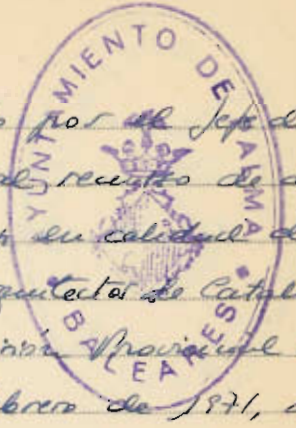 AYUNTAMIENTO DE PALMA
BALEARES
por el Jefe d
al, recinto de
en calidad d
quitectos de Catal
isión Provincial
brero de 1971,